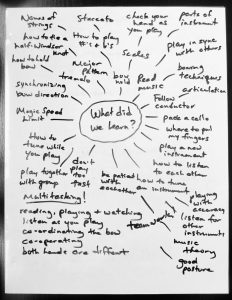 Names of
strings
Staccato
check your
hand as
you play
parts of
instrument
how to tie a
half-Windsor
knot
How to play
#'s + b's
Scales
play in sync
with others
how to hold
bow
Major
pattern
tremolo
bow
hold
Read
music
bowing
techniques
articulation
synchronizing
bow direction
Follow
conductor
Magic Speed
Limit
What did
we learn?
pack a cello
where to put
my fingers
How to
tune while
you play
play a new
instrument
how to listen
to each other
play together
with group
don't
play
too
fast
be patient
with
each other
how to tune
an instrument
Multitasking!
playing
with
accuracy
reading, playing + watching
listen as you play
co-ordinating the bow
co-operating
both hands are different
teamwork!
listen for
other
instruments
music
theory
good
posture